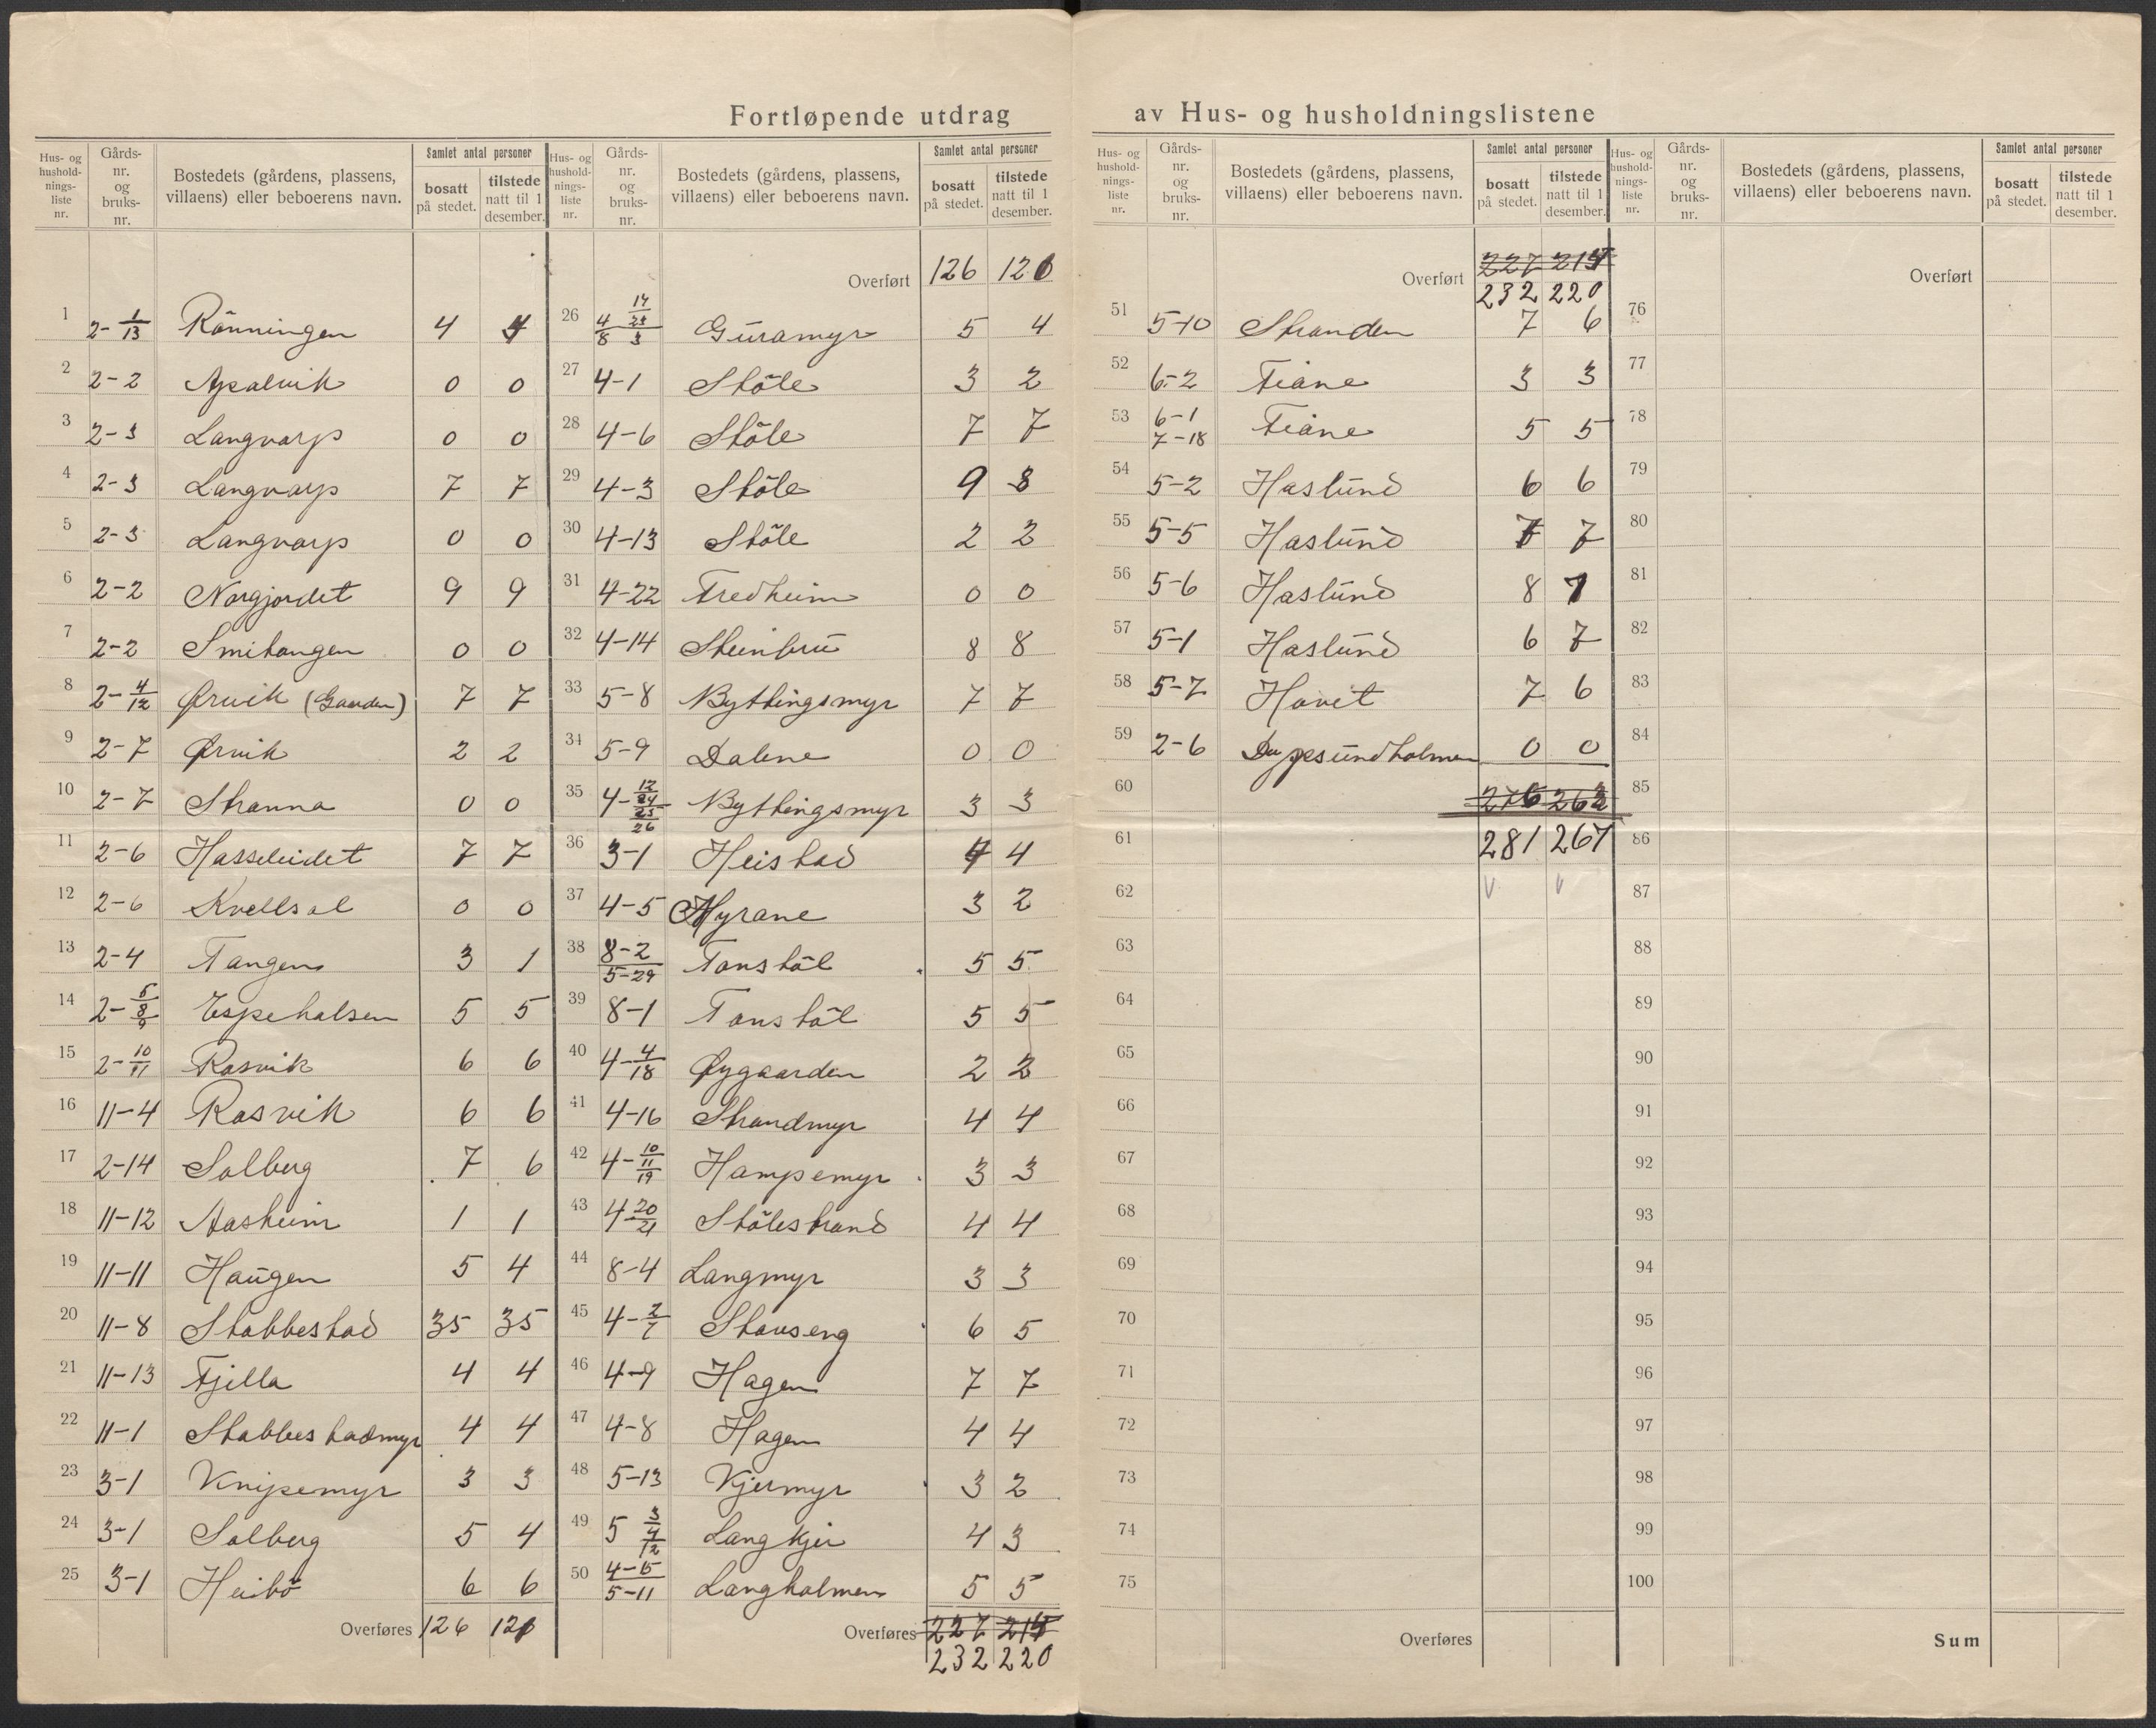 Fortløpende utdrag av Hus- og husholdningslistene
Hus- og hushold-nings-liste nr. Gårds-nr. og bruks-nr. Bostedets (gårdens, plassens, villaens) eller beboerens navn. Samlet antal personer bosatt på stedet. tilstede natt til 1 desember.
1 2-1/13 Rönningen 4 4
2 2-2 Apalvik 0 0
3 2-3 Langvarp 0 0
4 2-3 Langvarp 7 7
5 2-3 Langvarp 0 0
6 2-2 Norgjordet 9 9
7 2-2 Smitangen 0 0
8 2-4/12 Ørvik (Gaarden) 7 7
9 2-7 Ørvik 2 2
10 2-7 Stranna 0 0
11 2-6 Hasseleidet 7 7
12 2-6 Kvellsol 0 0
13 2-4 Tangen 3 1
14 2-5/8/9 Espehalsen 5 5
15 2-10/11 Rosvik 6 6
16 11-4 Rosvik 6 6
17 2-14 Solberg 7 6
18 11-12 Aasheim 1 1
19 11-11 Haugen 5 4
20 11-8 Stabbestad 35 35
21 11-13 Fjella 4 4
22 11-1 Stabbestadmyr 4 4
23 3-1 Knipemyr 3 3
24 3-1 Solberg 5 4
25 3-1 Heibö 6 6
Overføres 126 120
Hus- og hushold-nings-liste nr. Gårds-nr. og bruks-nr. Bostedets (gårdens, plassens, villaens) eller beboerens navn. Samlet antal personer bosatt på stedet. tilstede natt til 1 desember.
Overført 126 120
26 Guramyr 5 4
27 4-1 Stöle 3 2
28 4-6 Stöle 7 7
29 4-3 Stöle 9 8
30 4-13 Stöle 2 2
31 4-22 Fredheim 0 0
32 4-14 Steinbru 8 8
33 5-8 Bythingsmyr 7 7
34 5-9 Dalene 0 0
35 4-12/24/25/26 Bythingsmyr 3 3
36 3-1 Heistad 4 4
37 4-5 Myrane 3 2
38 8-2 5-29 Tonstöl 5 5
39 8-1 Tonstöl 5 5
40 4-4/18 Øygaarden 2 2
41 4-16 Strandmyr 4 4
42 4-10/11/19 Hampemyr 3 3
43 4 20/21 Stölestrand 4 4
44 8-4 Langmyr 3 3
45 4-2/7 Stauseng 6 5
46 4-9 Hagen 7 7
47 4-8 Hagen 4 4
48 5-13 Kjermyr 3 2
49 5 3/4/12 Langkjer 4 3
50 4-15 5-11 Langholmen 5 5
Overføres 227 215
232 220
Hus- og hushold-nings-liste nr. Gårds-nr. og bruks-nr. Bostedets (gårdens, plassens, villaens) eller beboerens navn. Samlet antal personer bosatt på stedet. tilstede natt til 1 desember.
Overført 227 215
232 220
51 5-10 Stranden 7 6
52 6-2 Fiane 3 3
53 6-1 7-18 Fiane 5 5
54 5-2 Haslund 6 6
55 5-5 Haslund 7 7
56 5-6 Haslund 8 7
57 5-1 Haslund 6 7
58 5-7 Hovet 7 6
59 2-6 0 0
60 276 262
61 281 267
62
63
64
65
66
67
68
69
70
71
72
73
74
75
Overføres
Hus- og hushold-nings-liste nr. Gårds-nr. og bruks-nr. Bostedets (gårdens, plassens, villaens) eller beboerens navn. Samlet antal personer bosatt på stedet. tilstede natt til 1 desember.
Overført
76
77
78
79
80
81
82
83
84
85
86
87
88
89
90
91
92
93
94
95
96
97
98
99
100
Sum